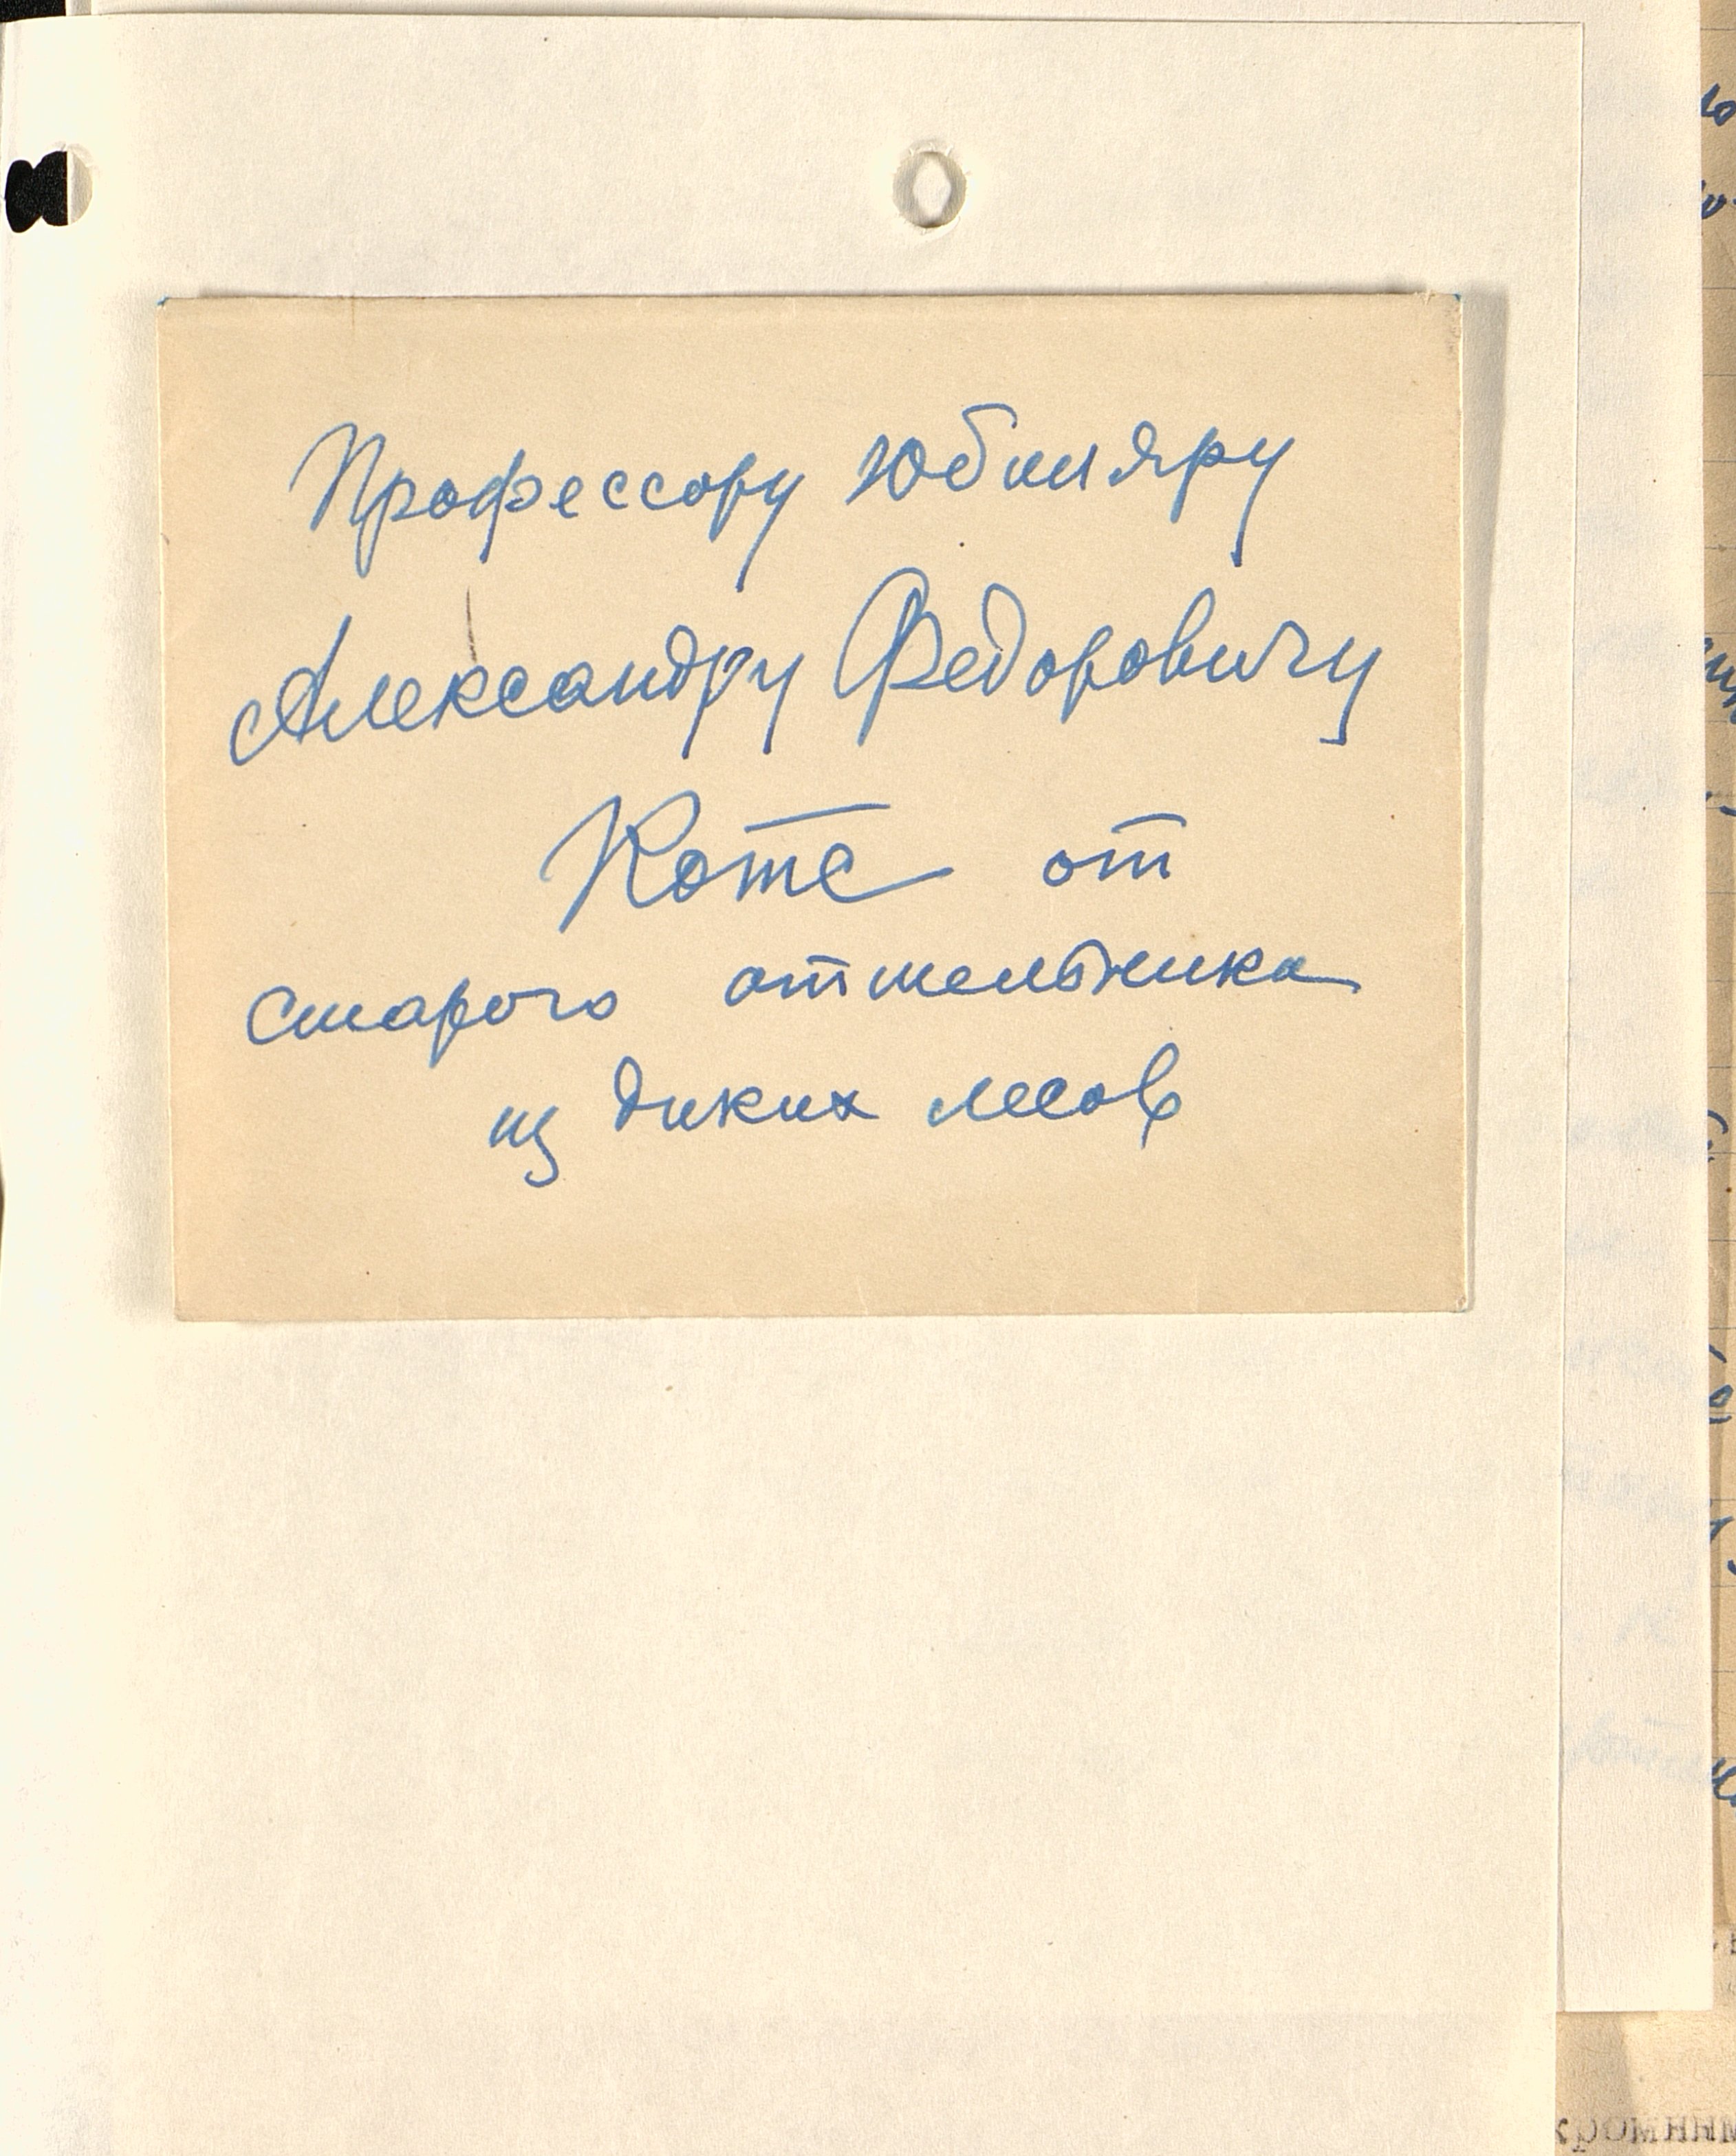 Профессору Юбиляру
Александру Федоровичу
Котс от
старого отшельника
из диких лесов